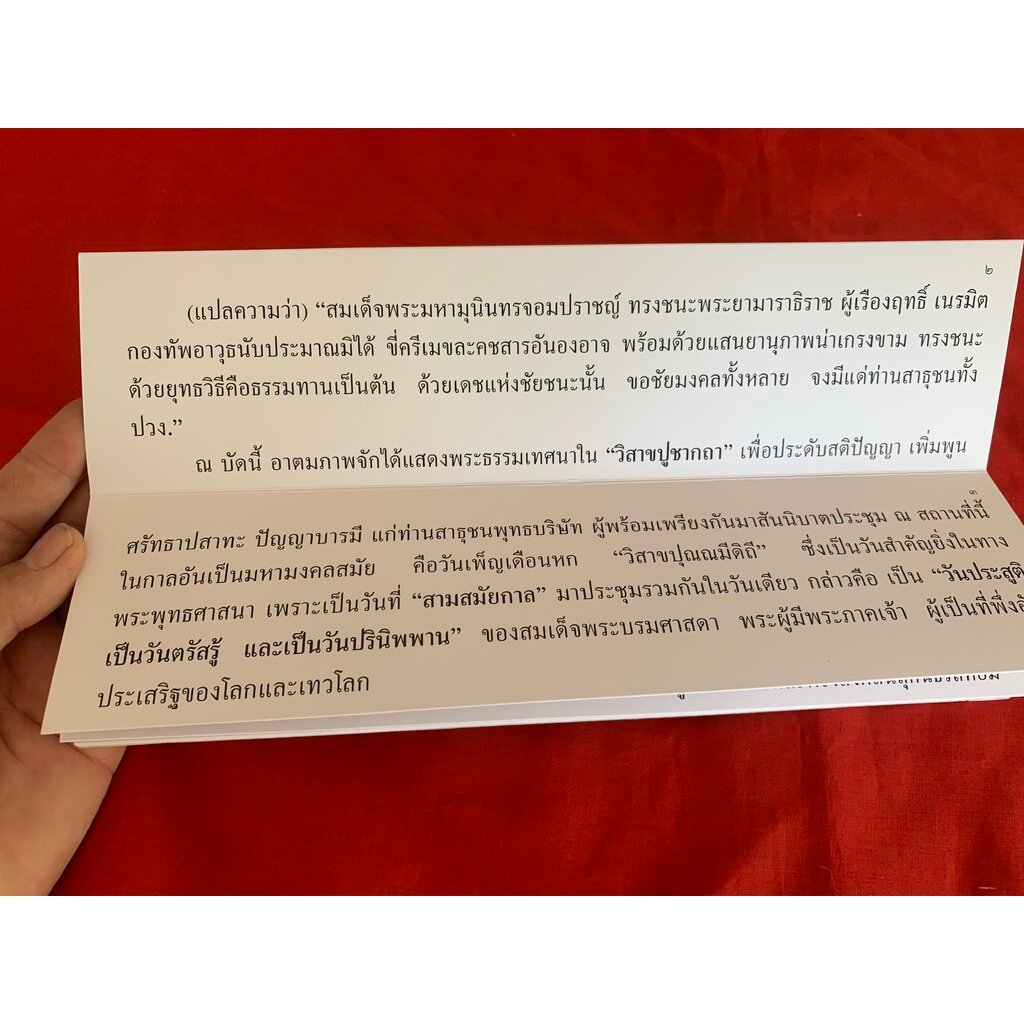 ๒
(แปลความว่า) “สมเด็จพระมหามุนินทรจอมปราชญ์ ทรงชนะพระยามาราธิราช ผู้เรืองฤทธิ์ เนรมิต
กองทัพอาวุธนับประมาณมิได้ ขี่ครีเมขละคชสารอันองอาจ พร้อมด้วยแสนยานุภาพน่าเกรงขาม ทรงชนะ
ด้วยยุทธวิธีคือธรรมทานเป็นต้น ด้วยเดชแห่งชัยชนะนั้น ขอชัยมงคลทั้งหลาย จงมีแด่ท่านสาธุชนทั้ง
ปวง.”
ณ บัดนี้ อาตมภาพจักได้แสดงพระธรรมเทศนาใน “วิสาขปูชากถา” เพื่อประดับสติปัญญา เพิ่มพูน
๓
ศรัทธาปสาทะ ปัญญาบารมี แก่ท่านสาธุชนพุทธบริษัท ผู้พร้อมเพรียงกันมาสันนิบาตประชุม ณ สถานที่นี้
ในกาลอันเป็นมหามงคลสมัย คือวันเพ็ญเดือนหก “วิสาขปุณณมีดิถี” ซึ่งเป็นวันสำคัญยิ่งในทาง
พระพุทธศาสนา เพราะเป็นวันที่ “สามสมัยกาล” มาประชุมรวมกันในวันเดียว กล่าวคือ เป็น “วันประสูติ
เป็นวันตรัสรู้ และเป็นวันปรินิพพาน” ของสมเด็จพระบรมศาสดา พระผู้มีพระภาคเจ้า ผู้เป็นที่พึ่ง
ประเสริฐของโลกและเทวโลก